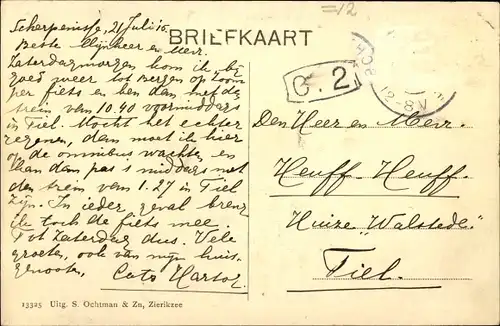 =12
BRIEFKAART
Scherpenisse, 21 Juli 15.
Beste Mijnheer en Mevr.
Zaterdagmorgen kom ik bij
goed weer tot Bergen op Zoom
per fiets en ben dan met de
trein van 10.40 voormiddags
in Tiel. Mocht het echter
regenen, dan moet ik hier
op de omnibus wachten en
kan dan pas 's middags met
den trein van 1.27 in Tiel
zijn. In ieder geval breng
ik toch de fiets mee.
Tot Zaterdag dus. Vele
groeten, ook van mijn huis-
genooten, Cato Hartog.
G. 2
12-8.V
Den Heer en Mevr.
Heuff-Heuff.
Huize "Walstede"
Tiel.
13325 Uitg. S. Ochtman & Zn, Zierikzee